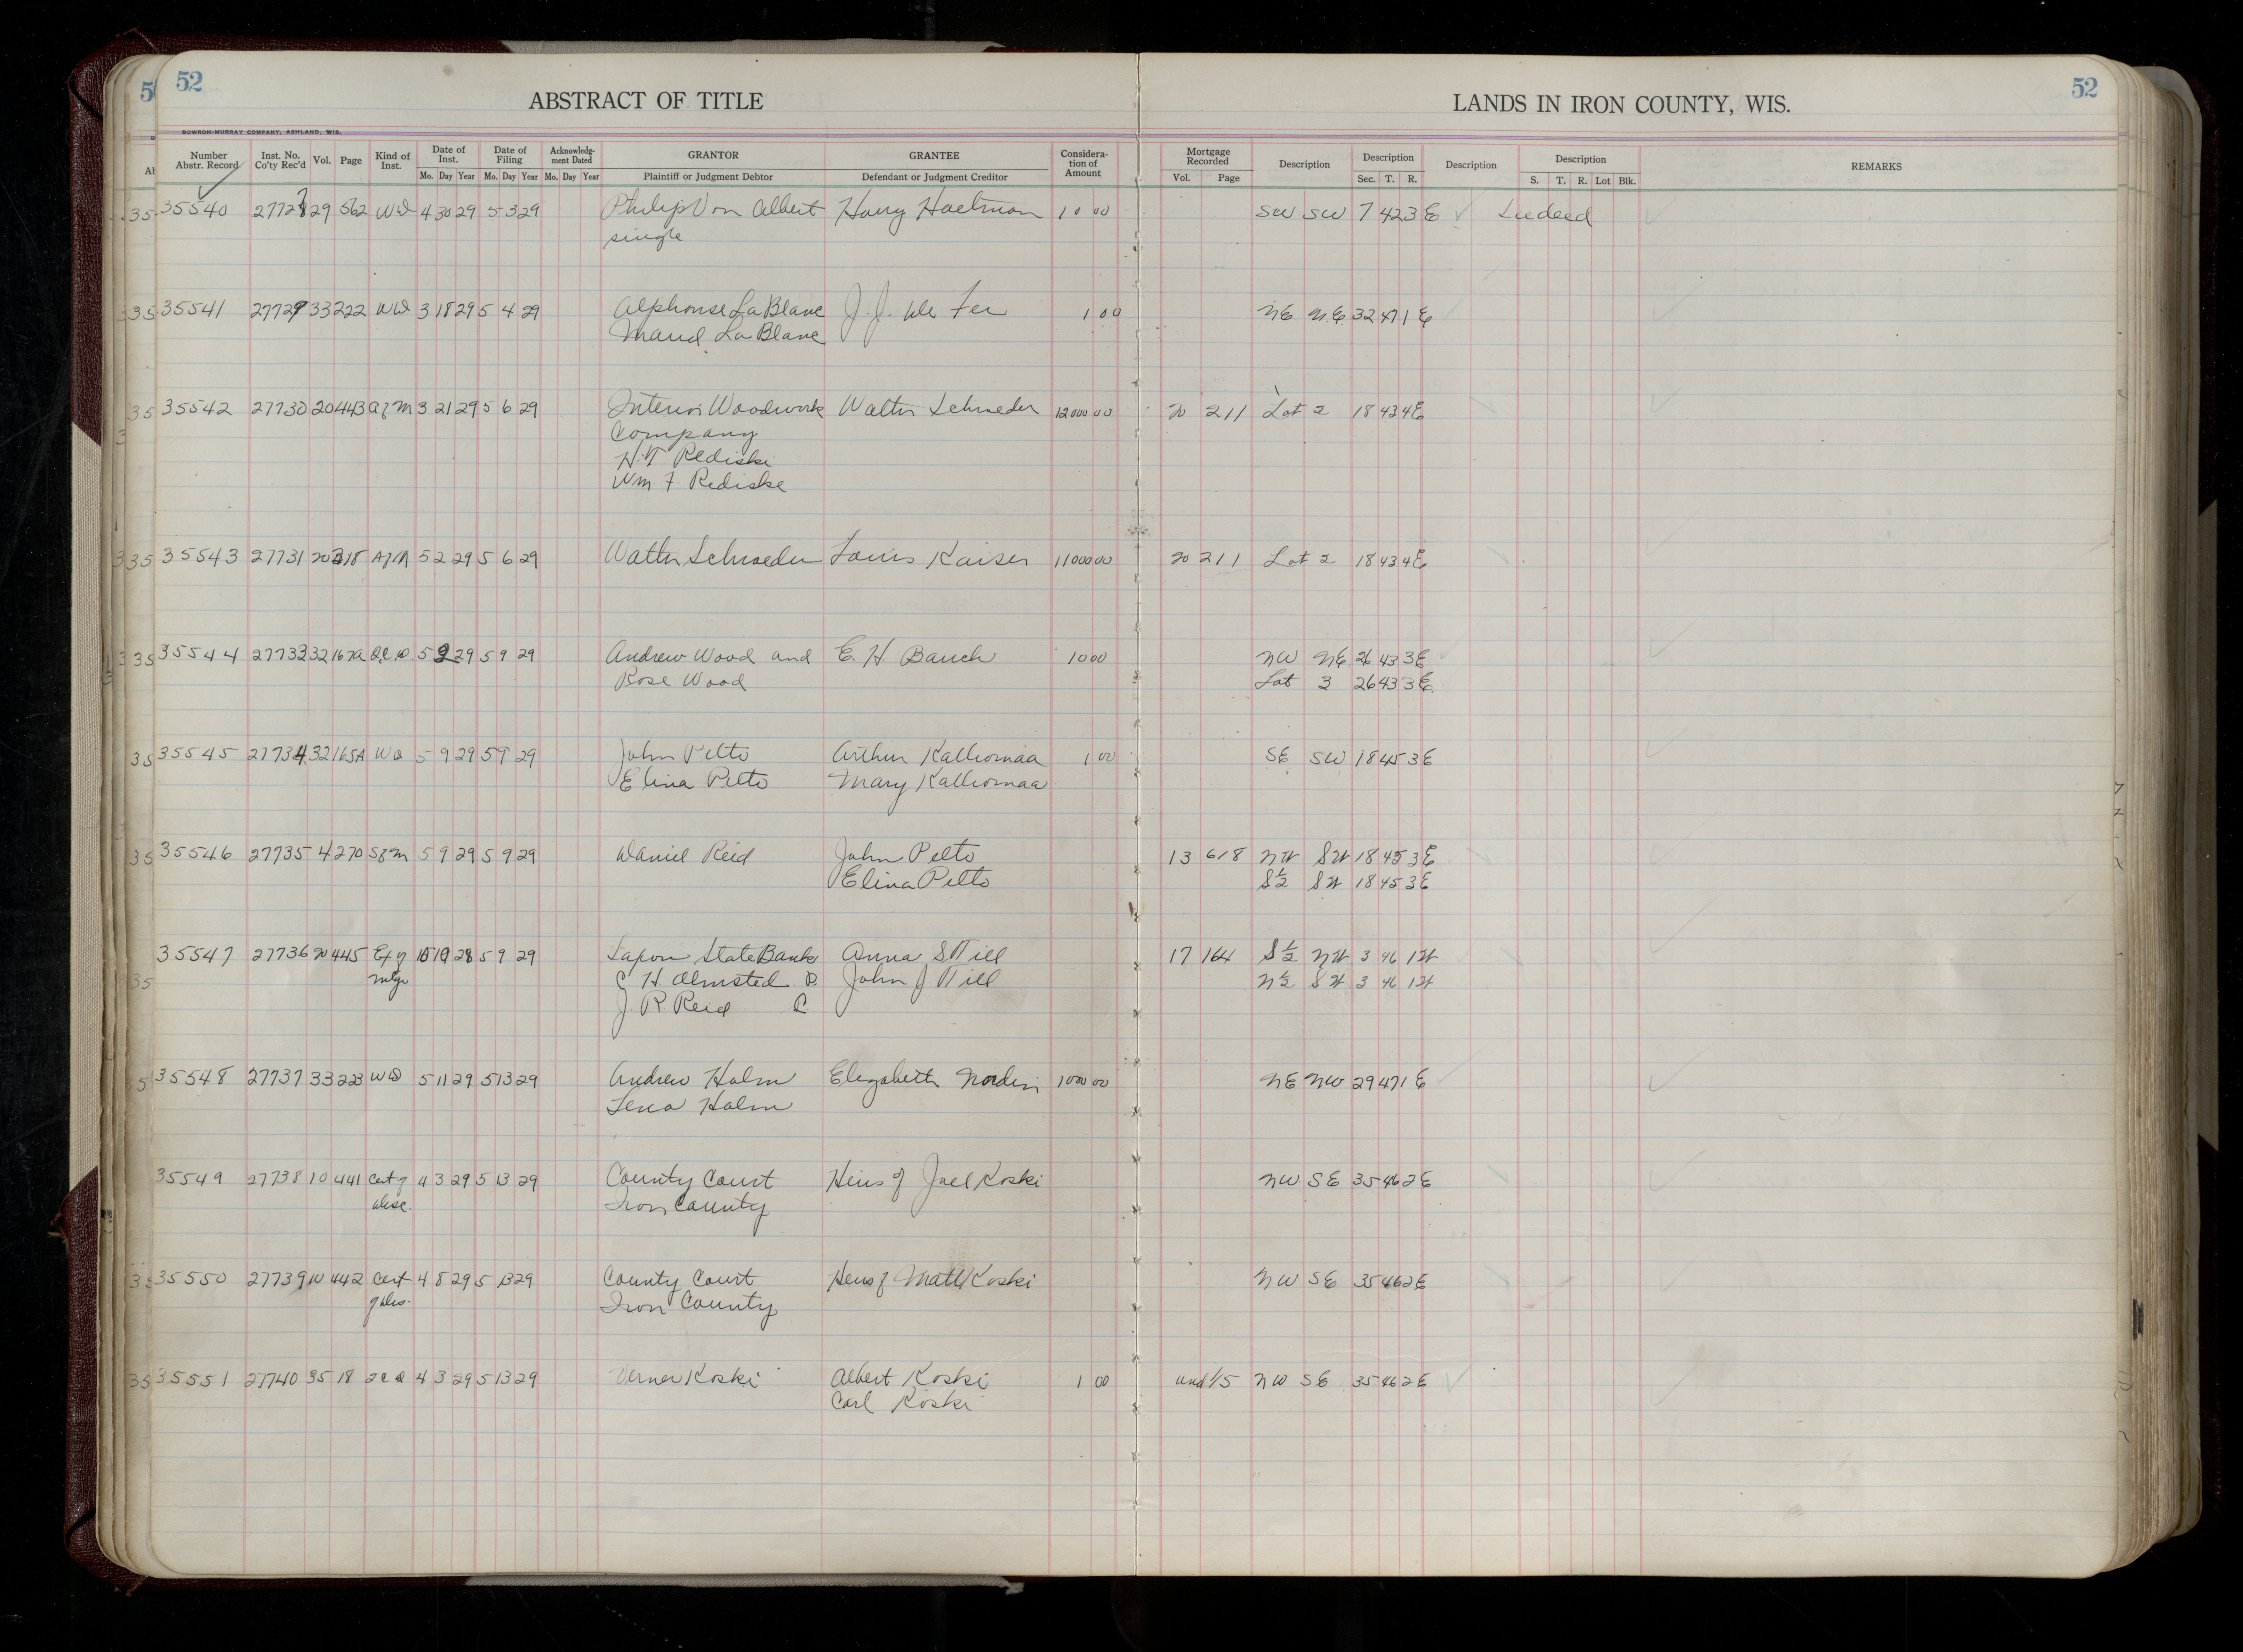 52
52
52
ABSTRACT OF TITLE
LANDS IN IRON COUNTY, WIS.
BOWRON-MURRAY COMPANY, ASHLAND, WIS.
Number Abstr. Record Inst. No. Co'ty Rec'd Vol. Page Kind of Inst. Date of Inst. Date of Filing Acknowledgment Dated GRANTOR GRANTEE Consideration of Amount Mortgage Recorded Description Description Description Description REMARKS
Mo. Day Year Mo. Day Year Mo. Day Year Plaintiff or Judgment Debtor Defendant or Judgment Creditor Vol. Page Sec. T. R. S. T. R. Lot Blk.
35540 29 562 WD 4 30 29 5 3 29 Philip Von Albert Harry 10 00 SW SW 7 42 3 E
single
35541 27729 33 222 WD 3 18 29 5 4 29 Alphonse La Blanc J. J. 1 00 NE NE 32 47 1 E
Maud La Blanc
35542 27730 20 443 of M 3 21 29 5 6 29 Interior Woodwork Walter Schroeder 12000 00 20 211 Lot 2 18 43 4 E
Company
H. T. Rediski
Wm F. Rediske
35543 27731 20 318 5 2 29 5 6 29 Walter Schroeder Louis Kaiser 11000 00 20 211 Lot 2 18 43 4 E
35544 27733 32 167A Q C D 5 29 5 9 29 Andrew Wood and E. H. Bauch 10 00 NW NE 26 43 3 E
Rose Wood Lot 3 26 43 3 E
35545 27734 32 165A WD 5 9 29 5 9 29 John Pelto Arthur Kalliomaa 1 00 SE SW 18 45 3 E
Elina Pelto Mary Kalliomaa
35546 27735 4 270 S of M 5 9 29 5 9 29 Daniel Reid John Pelto 13 618 NW SW 18 45 3 E
Elina Pelto S½ SW 18 45 3 E
35547 27736 20 445 Ext of 10 29 5 9 29 State Bank Anna S Till 17 164 S½ NW 3 46 1 W
mtge C. H. Olmsted P John J Till N½ SW 3 46 1 W
J. R. Reid C
35548 27737 33 223 WD 5 11 29 5 13 29 Andrew Holm Elizabeth Nordin 1000 00 NE NW 29 47 1 E
Lena Holm
35549 27738 10 441 Cert of 4 3 29 5 13 29 County Court Heirs of Joel Koski NW SE 35 46 2 E
Iron County
35550 27739 10 442 Cert 4 8 29 5 13 29 County Court Heirs of Matt Koski NW SE 35 46 2 E
Iron County
35551 27740 35 18 Q C D 4 3 29 5 13 29 Verner Koski Albert Koski 1 00 und 1/5 NW SE 35 46 2 E
Carl Koski